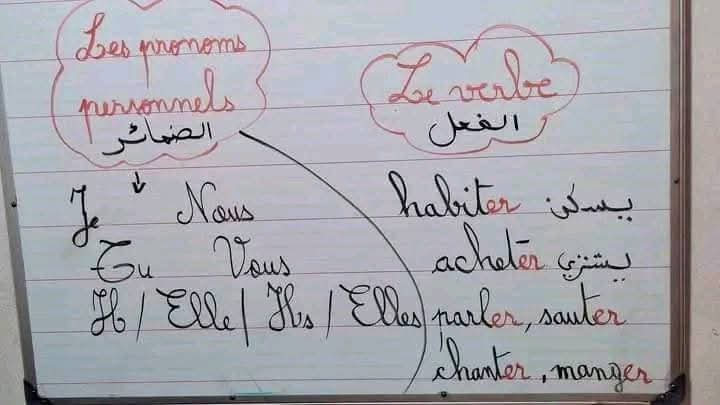 Les pronoms
personnels
الضمائر
Je Nous
Tu Vous
Il / Elle / Ils / Elles
Le verbe
الفعل
habiter يسكن
acheter يشتري
parler, sauter
chanter, manger